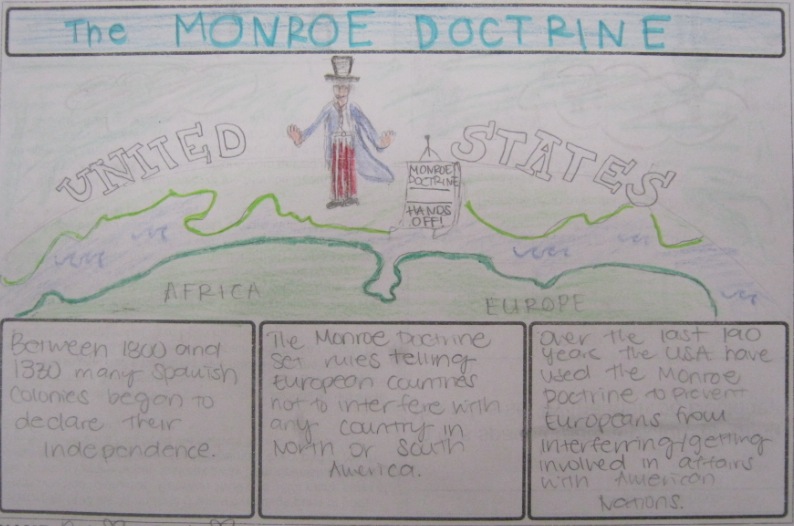 The MONROE DOCTRINE
UNITED STATES
MONROE
DOCTRINE
HANDS
OFF!
AFRICA
EUROPE
Between 1800 and
1830 many Spanish
colonies began to
declare their
independence.
The Monroe Doctrine
set rules telling
European countries
not to interfere with
any country in
North or South
America.
Over the last 190
years the USA have
used the Monroe
Doctrine to prevent
Europeans from
interferring/getting
involved in affairs
with American
Nations.